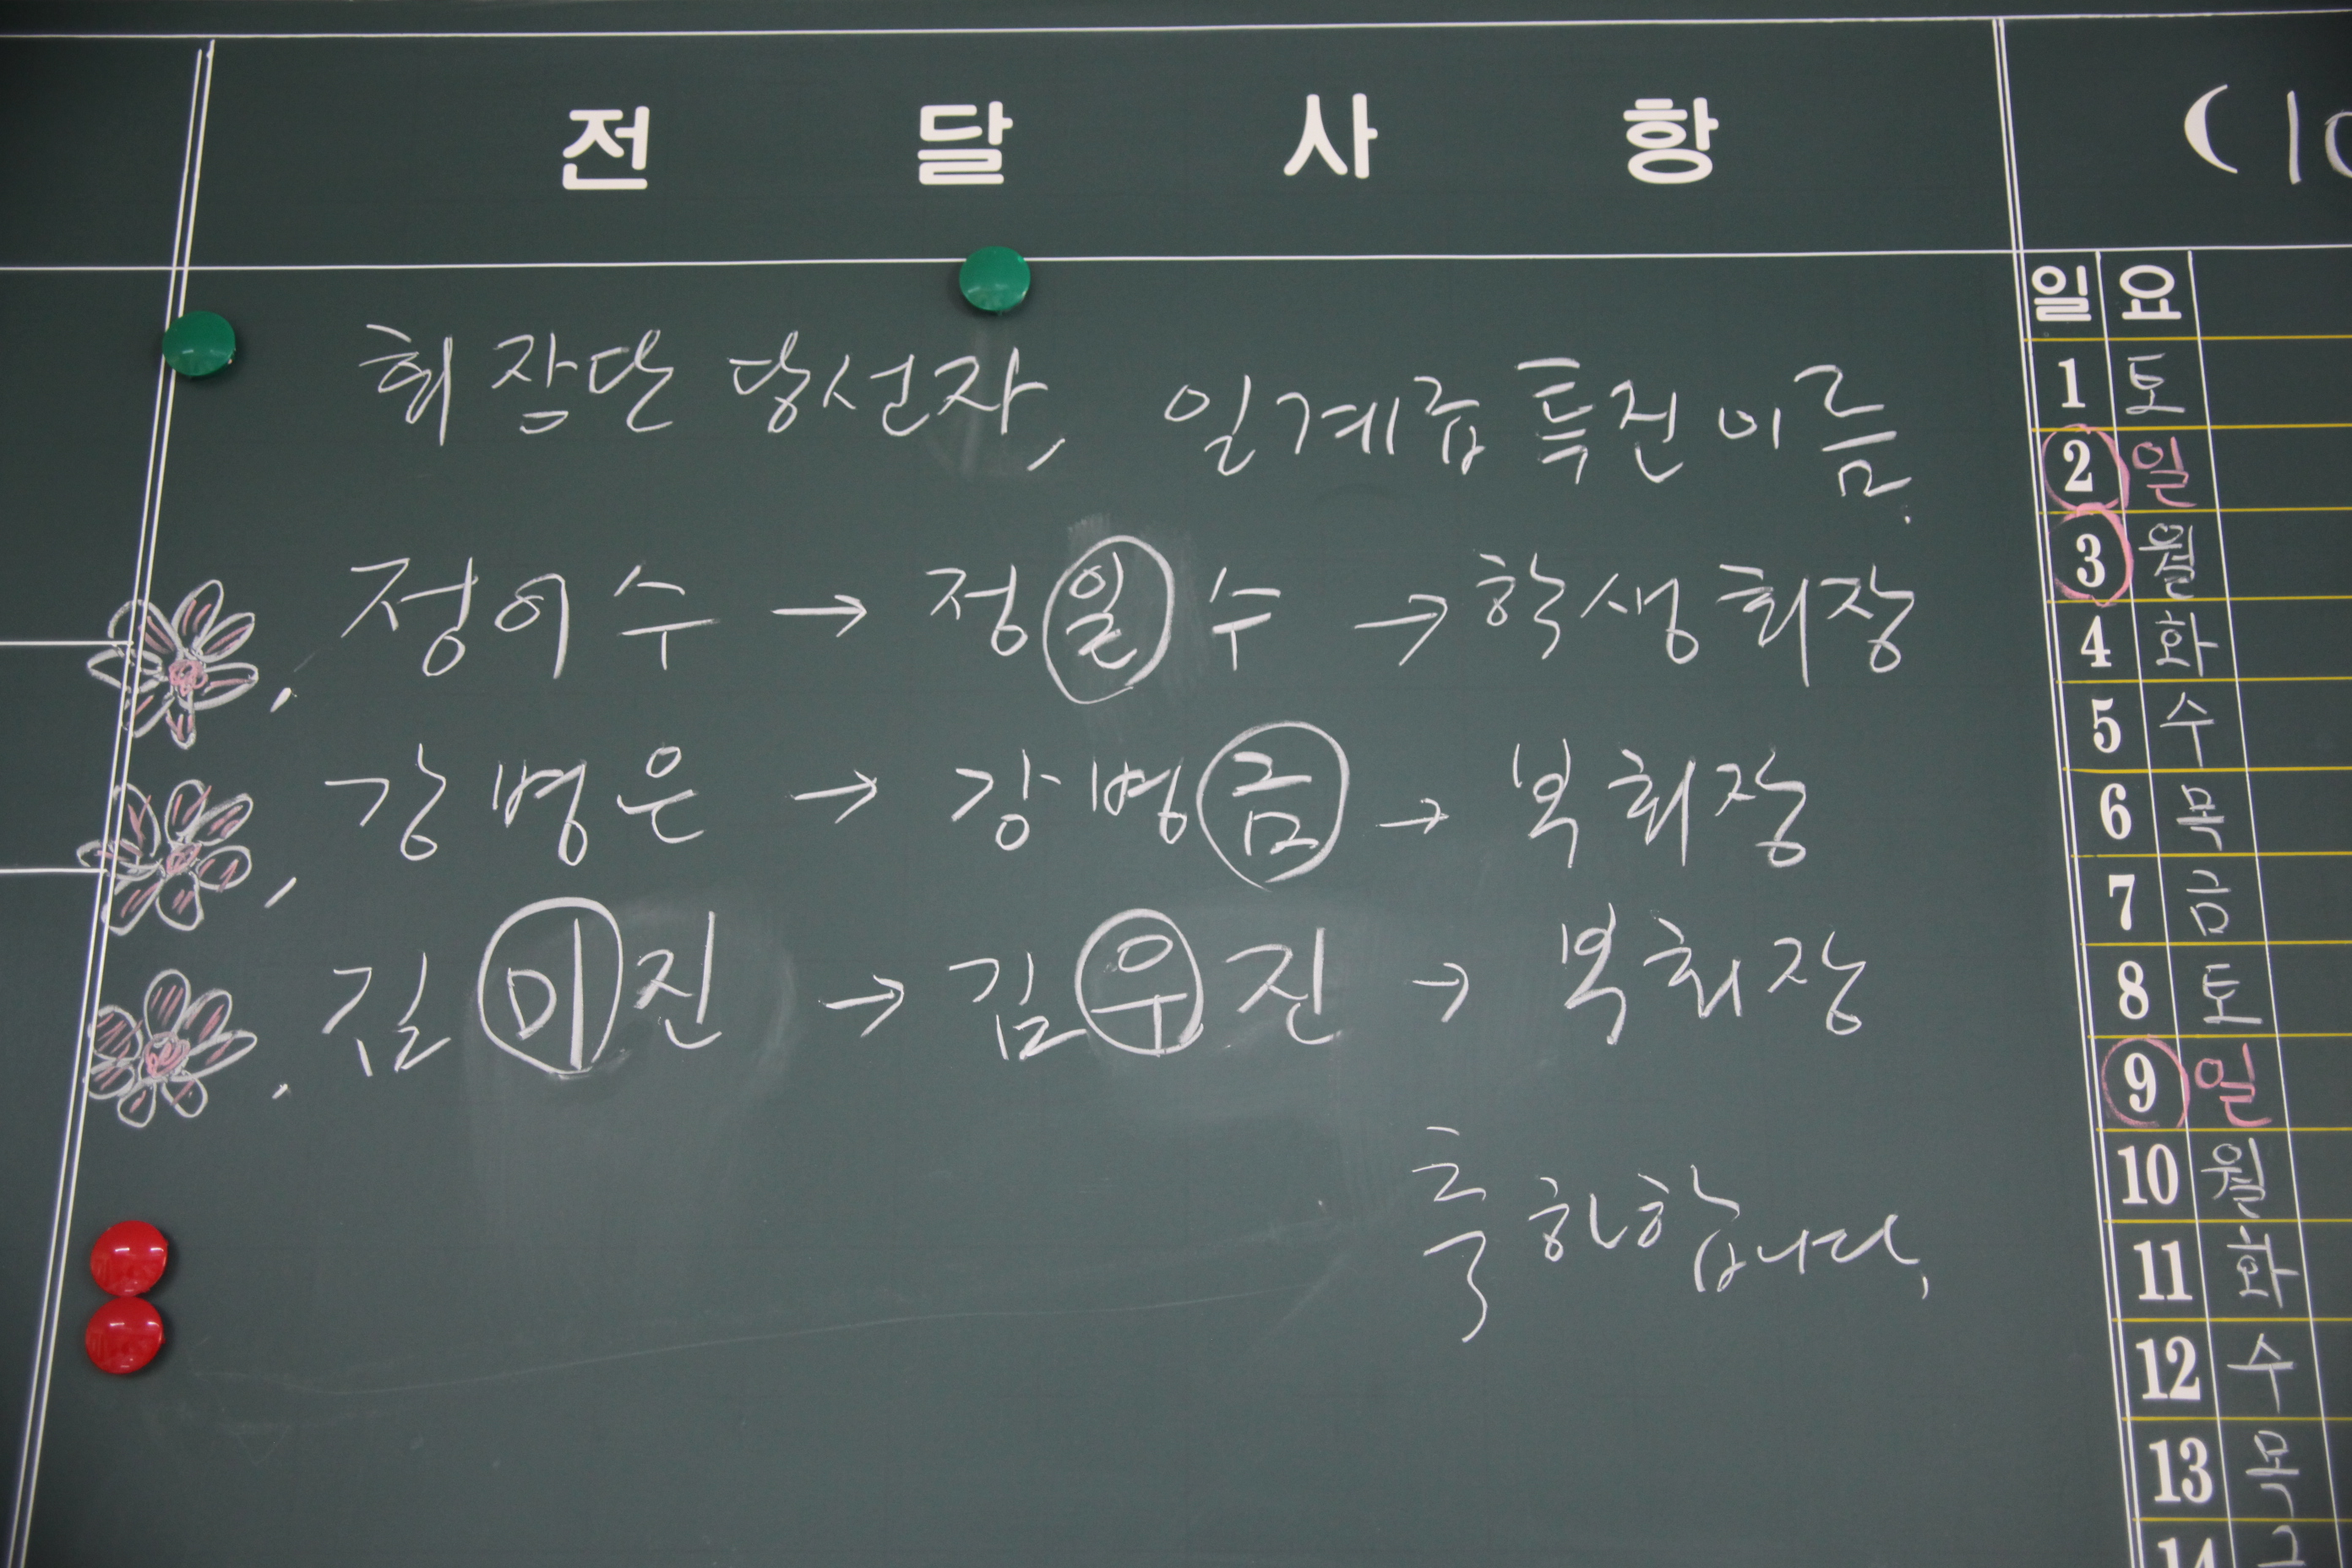 전달사항
회장단 당선자, 일계급 특진 이름.
정이수 → 정일수 → 학생회장
강병은 → 강병금 → 부회장
김미진 → 김우진 → 부회장
축하합니다.
(10
일 요
1 토
2 일
3 월
4 화
5 수
6 목
7 금
8 토
9 일
10 월
11 화
12 수
13 목
14